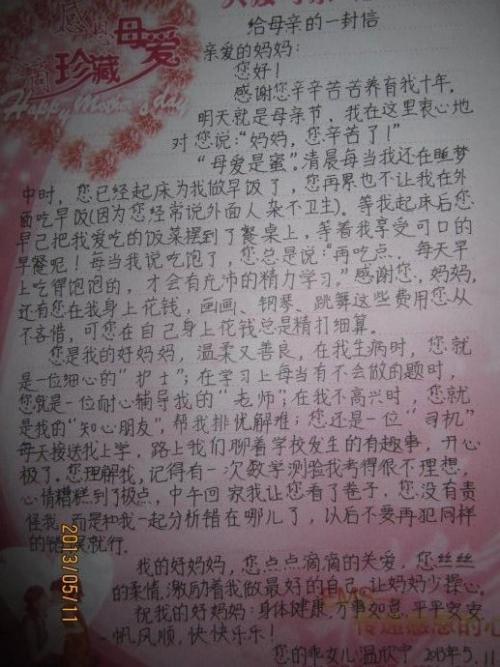 珍藏母爱
Happy Mother's day
给母亲的一封信
亲爱的妈妈：
您好！
感谢您辛辛苦苦养育我十年。
明天就是母亲节，我在这里衷心地
对您说：“妈妈，您辛苦了！”
“母爱是蜜”。清晨每当我还在睡梦
中时，您已经起床为我做早饭了，您再累也不让我在外
面吃早饭(因为您经常说外面人杂不卫生)。等我起床后您
早已把我爱吃的饭菜摆到了餐桌上，等着我享受可口的
早餐呢！每当我说吃饱了，您总是说：“再吃点，每天早
上吃得饱饱的，才会有充沛的精力学习。”感谢您，妈妈，
还有您在我身上花钱，画画、钢琴、跳舞这些费用您从
不吝惜，可您在自己身上花钱总是精打细算。
您是我的好妈妈，温柔又善良，在我生病时，您就
是一位细心的“护士”；在学习上每当有不会做的题时，
您就是一位耐心辅导我的“老师”；在我不高兴时，您就
是我的“知心朋友”，帮我排忧解难；您还是一位“司机”
每天接送我上学，路上我们聊着学校发生的有趣事，开心
极了。您理解我，记得有一次数学测验我考得很不理想，
心情糟糕到了极点，中午回家我让您看了卷子，您没有责
怪我，而是和我一起分析错在哪儿了，以后不要再犯同样
的错误就行。
我的好妈妈，您点点滴滴的关爱，您丝丝
的柔情，激励着我做最好的自己，让妈妈少操心。
祝我的好妈妈：身体健康，万事如意，平平安安
一帆风顺，快快乐乐！
您的乖女儿：温欣宁 2013年5.11
传递感恩的心
2013/05/11